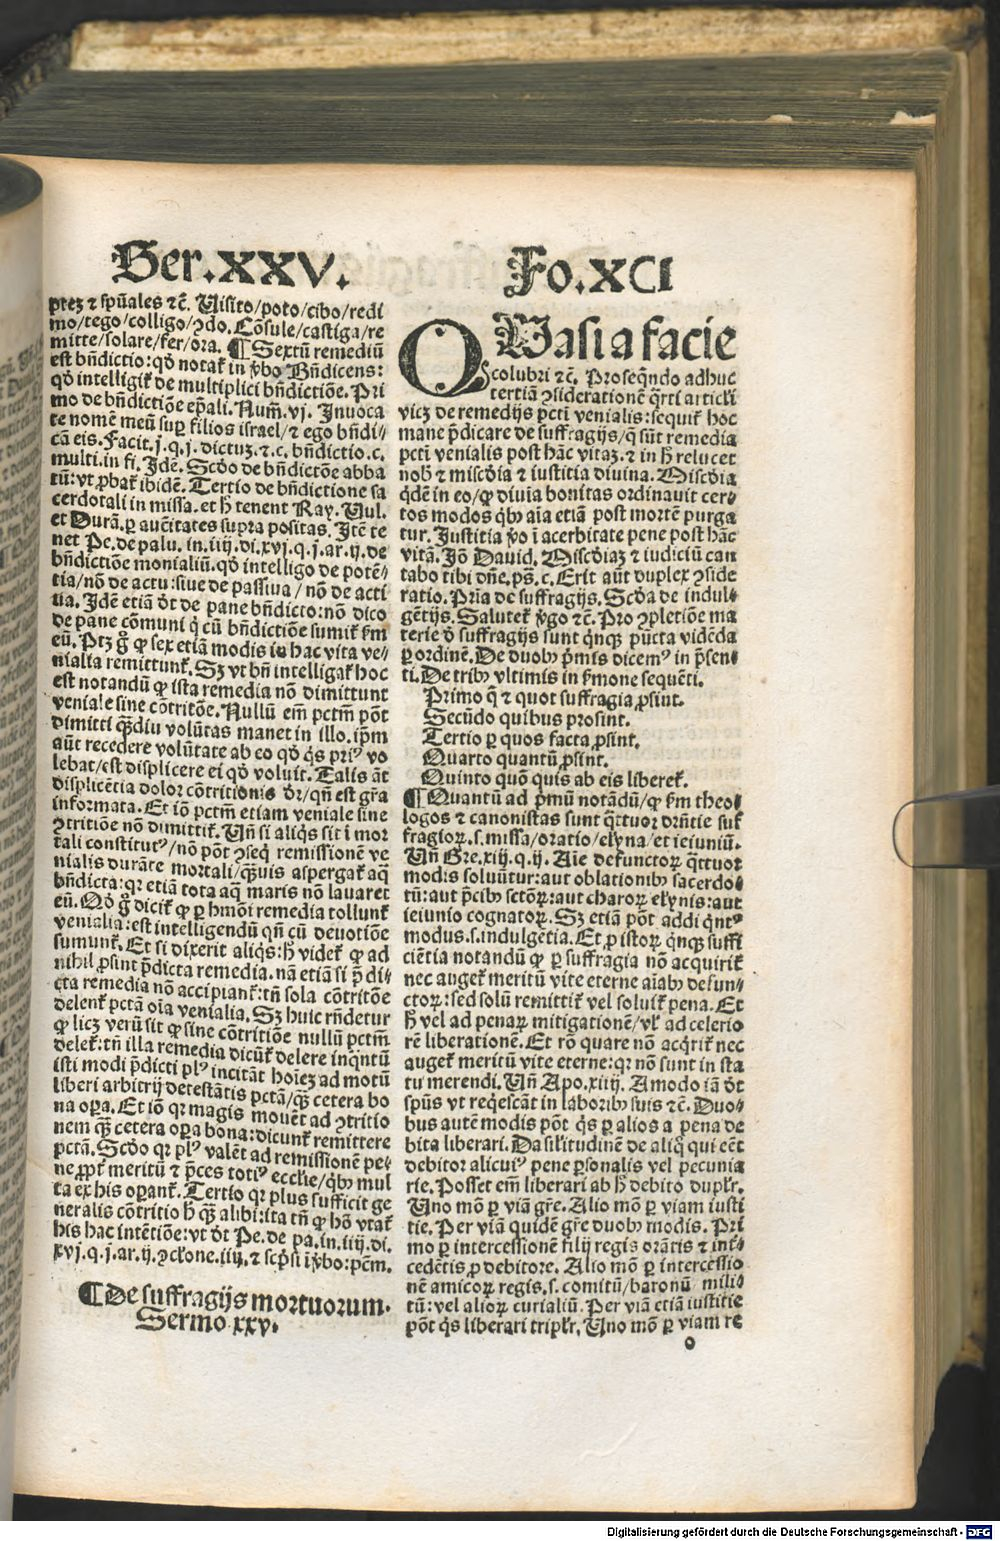 Ser.XXV.
ptez ⁊ spũales ⁊c̃. Uisito/poto/cibo/redi
mo/tego/colligo/ↄdo. Cõsule/castiga/re
mitte/solare/fer/ora. ¶ Sextũ remediũ
est bñdictio: qđ notat᷑ in ṽbo Bñdicens:
qđ intelligit᷑ de multiplici bñdictiõe. Pri
mo de bñdictiõe ep̃ali. Num̃. vj. Inuoca
te nomẽ meũ suꝑ filios israel/⁊ ego bñdi⸗
cã eis. Facit. j. q. j. dictuz. ⁊ .c. bñdictio .c.
multi. in fi. Idẽ. Scđo de bñdictõe abba
tũ: vt ꝓbat᷑ ibidẽ. Tertio de bñdictione sa
cerdotali in missa. et h̃ tenent Ray. Vul.
et Durã. ꝑ auc̃itates supra positas. Itẽ te
net Pe. de palu. in .iiij. di. xvj. q. j. ar. ij. de
bñdictiõe monialiũ. qđ intelligo de potẽ⸗
tia/nõ de actu: siue de passiua / nõ de acti
ua. Idẽ etiã d̃t de pane bñdicto: nõ dico
de pane cõmuni q̃ cũ bñdictiõe sumit᷑ ẞm
eũ. Ptz g̃ ꝙ sex etiã modis in hac vita ve⸗
nialia remittunt᷑. Sz vt bñ intelligat᷑ hoc
est notandũ ꝙ ista remedia nõ dimittunt
veniale sine cõtritõe. Nullũ em̃ pctm̃ põt
dimitti qãdiu volũtas manet in illo. ip̃m
aũt recedere volũtate ab eo qđ q̃s priꝰ vo
lebat/est displicere ei qđ voluit. Talis ãt
displicẽtia dolor cõtritionis d̃r/qñ est gr̃a
informata. Et iõ pctm̃ etiam veniale sine
ↄtritiõe nõ dimittit᷑. Uñ si aliq̃s sit ĩ mor
tali constitutꝰ/nõ põt ↄseq̃ remissionẽ ve
nialis durãte mortali/q̃uis aspergat᷑ aq̃
bñdicta: qꝛ etiã tota aq̃ maris nõ lauaret
eũ. Qđ g̃ dicit᷑ ꝙ ꝑ hmõi remedia tollunt᷑
venialia: est intelligendũ qñ cũ deuotiõe
sumunt᷑. Et si dixerit aliq̃s: h̃ videt᷑ ꝙ ad
nihil ꝓsint p̃dicta remedia. nã etiã si p̃ di⸗
cta remedia nõ accipiant᷑: tñ sola cõtritõe
delent᷑ pctã oĩa venialia. Sz huic rñdetur
ꝙ licz verũ sit ꝙ sine cõtritiõe nullũ pctm̃
delet᷑: tñ illa remedia dicũt᷑ delere inq̃ntũ
isti modi p̃dicti plꝰ incitãt hoĩez ad motũ
liberi arbitrij detestãtis pctã/q̃ cetera bo
na oꝑa. Et iõ qꝛ magis mouẽt ad ↄtritio
nem q̃ cetera oꝑa bona: dicunt᷑ remittere
pctã. Scđo qꝛ plꝰ valẽt ad remissionẽ pe⸗
ne ꝓpt᷑ meritũ ⁊ p̃ces totiꝰ ecclie/qbꝰ mul
ta ex his oꝑant᷑. Tertio qꝛ plus sufficit ge
neralis cõtritio h̃ q̃ alibi: ita tñ ꝙ hõ vtat᷑
his hac intẽtiõe: vt d̃t Pe. de pa. in .iiij. di.
xvj. q. j. ar. ij. ↄclone. iiij. ⁊ scp̃si ĩ ṽbo: pc̃m.
¶ De suffragijs mortuorum.
Sermo .xxv.
Fo.XCI
QUasi a facie
colubri ⁊c̃. Proseq̃ndo adhuc
tertiã ↄsiderationẽ q̃rti articli
vicz de remedijs pcti venialis: sequit᷑ hoc
mane p̃dicare de suffragijs/q̃ sũt remedia
pcti venialis post hãc vitaz. ⁊ in h̃ relucet
nob̃ ⁊ miscđia ⁊ iustitia diuina. Miscđia
q̃dẽ in eo/ꝙ diuia bonitas ordinauit cer⸗
tos modos qbꝰ aĩa etiã post mortẽ purga
tur. Justitia ṽo ĩ acerbitate pene post hãc
vitã. Jõ Dauid. Miscđiaz ⁊ iudiciũ can
tabo tibi dñe. ps̃. c. Erit aũt duplex ↄside
ratio. Pria de suffragijs. Scđa de indul⸗
gẽtijs. Salutet᷑ ṽgo ⁊c̃. Pro ↄpletiõe ma
terie d̃ suffragijs sunt q̃nqꝫ pũcta vidẽda
ꝑ ordinẽ. De duobꝰ p̃mis dicemꝰ in p̃sen⸗
ti. De tribꝰ vltimis in ẞmone sequẽti.
Primo q̃ ⁊ quot suffragia ꝓsint.
Secũdo quibus prosint.
Tertio ꝑ quos facta ꝓsint.
Quarto quantũ ꝓsint.
Quinto quõ quis ab eis liberet᷑.
¶ Quantũ ad p̃mũ notãdũ/ꝙ ẞm theo⸗
logos ⁊ canonistas sunt q̃ttuor dr̃ntie suf
fragioꝝ. s. missa/oratio/elỹna/et ieiuniũ.
Uñ Gre. xiij. q. ij. Aĩe defunctoꝝ q̃ttuor
modis soluũtur: aut oblationibꝰ sacerdo⸗
tũ: aut p̃cibꝰ sctõꝝ: aut charoꝝ elỹnis: aut
ieiunio cognatoꝝ. Sz etiã põt addi q̃ntꝰ
modus. s. indulgẽtia. Et ꝓ istoꝝ q̃nqꝫ suffi
ciẽtia notandũ ꝙ ꝑ suffragia nõ acquirit᷑
nec auget᷑ meritũ vite eterne aĩabꝰ defun⸗
ctoꝝ: sed solũ remittit᷑ vel soluit᷑ pena. Et
h̃ vel ad penaꝝ mitigationẽ/vl̃ ad celerio
rẽ liberationẽ. Et rõ quare nõ acq̃rit᷑ nec
auget᷑ meritũ vite eterne: qꝛ nõ sunt in sta
tu merendi. Uñ Apo. xiiij. Amodo iã d̃t
spũs vt req̃escãt in laboribꝰ suis ⁊c̃. Duo⸗
bus autẽ modis põt q̃s ꝑ alios a pena de
bita liberari. Da sil̃itudinẽ de aliq̃ qui eẽt
debitor alicuiꝰ pene ꝑsonalis vel pecunia
rie. Posset em̃ liberari ab h̃ debito dupl̃r.
Uno mõ ꝑ viã gr̃e. Alio mõ ꝑ viam iusti
tie. Per viã quidẽ gr̃e duobꝰ modis. Pri
mo ꝑ intercessionẽ filij regis orãtis ⁊ int᷑⸗
cedẽtis ꝓ debitore. Alio mõ ꝑ intercessio
nẽ amicoꝝ regis. s. comitũ/baronũ mili⸗
tũ: vel alioꝝ curialiũ. Per viã etiã iustitie
põt q̃s liberari tripl̃r. Uno mõ ꝑ viam re
o
Digitalisierung gefördert durch die Deutsche Forschungsgemeinschaft - DFG